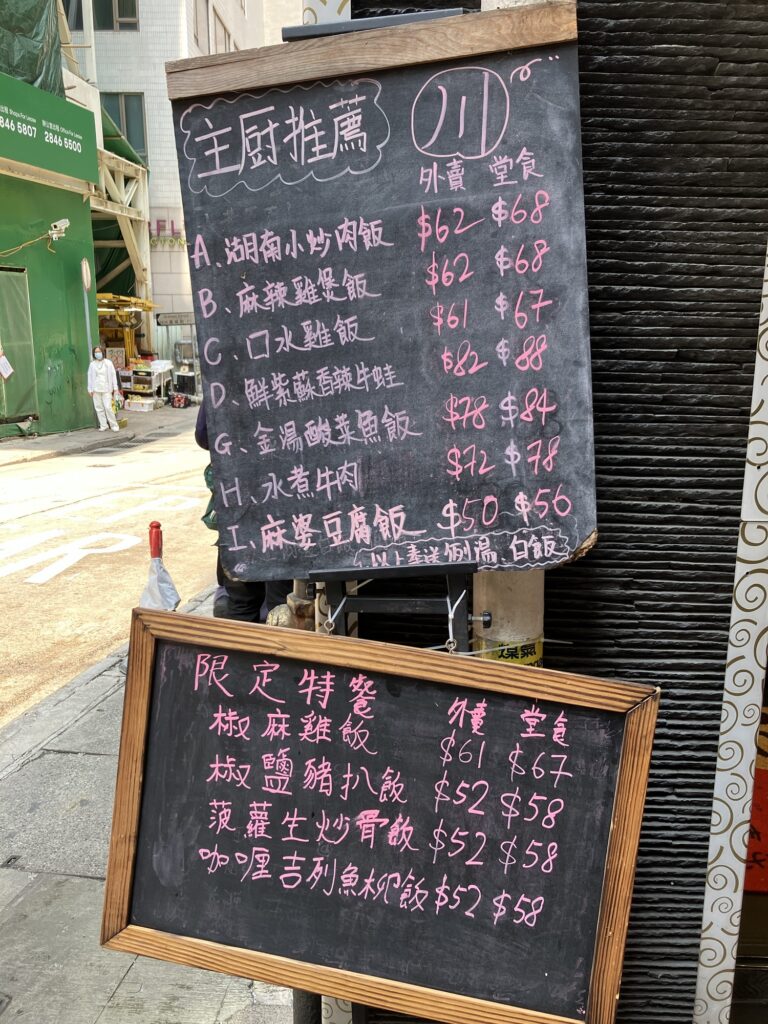 2846 5500
主厨推薦 川
外賣 堂食
A、湖南小炒肉飯 $62 $68
B、麻辣雞煲飯 $62 $68
C、口水雞飯 $61 $67
D、鮮紫蘇香辣牛蛙 $82 $88
G、金湯酸菜魚飯 $78 $84
H、水煮牛肉 $72 $78
I、麻婆豆腐飯 $50 $56
以上奉送例湯、白飯
煤氣
限定特餐 外賣 堂食
椒麻雞飯 $61 $67
椒鹽豬扒飯 $52 $58
菠蘿生炒骨飯 $52 $58
咖喱吉列魚柳飯 $52 $58